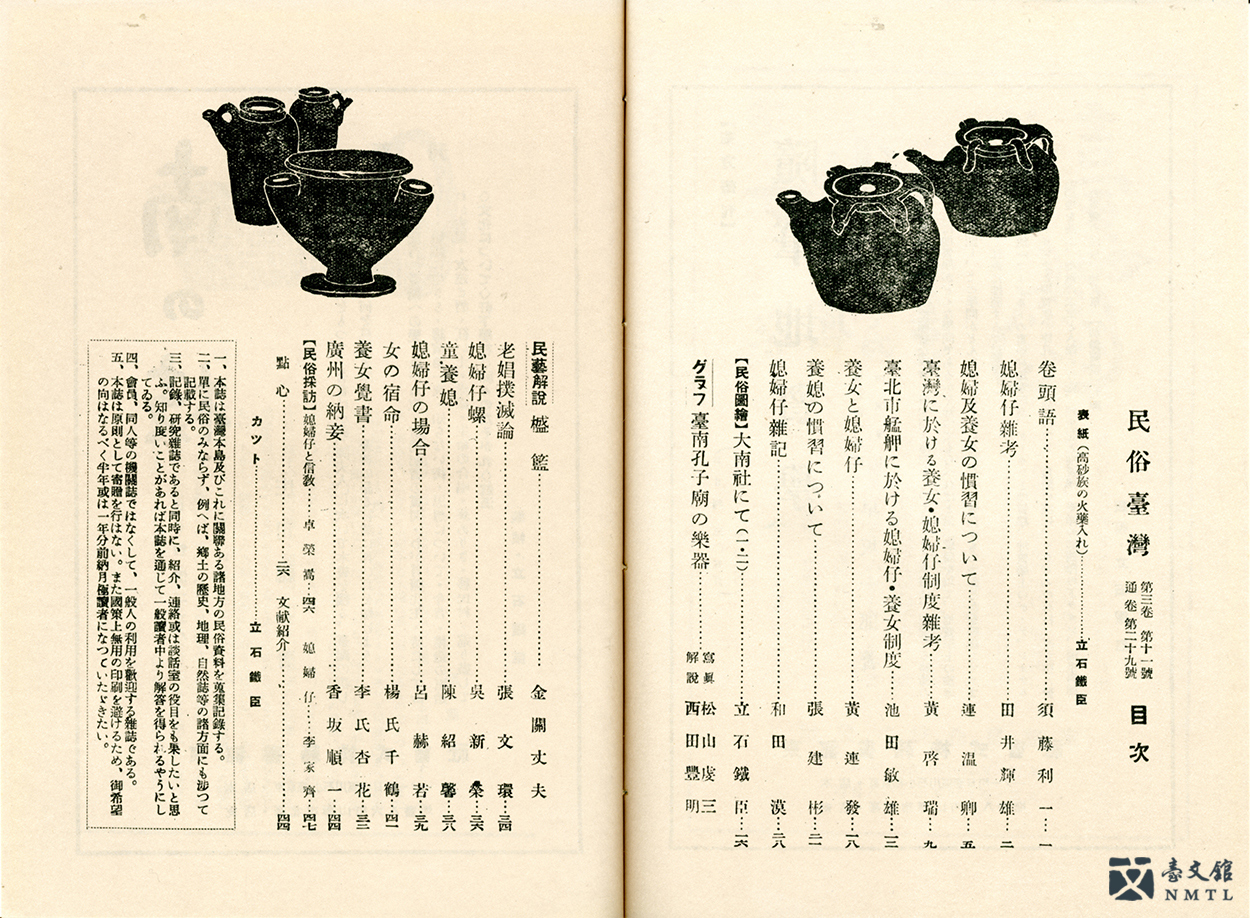 民俗臺灣 第三卷 第十一號 通卷 第二十九號 目次
表紙(高砂族の火藥入れ)……立石鐵臣
卷頭語……須藤利一…一
媳婦仔雜考……田井輝雄…二
媳婦及養女の慣習について……連溫卿…五
臺灣に於ける養女・媳婦仔制度雜考……黃啓瑞…九
臺北市艋舺に於ける媳婦仔・養女制度……池田敏雄…一三
養女と媳婦仔……黃連發…一八
養媳の慣習について……張建彬…二一
媳婦仔雜記……和田漠…二八
【民俗圖繪】大南社にて(一・二)……立石鐵臣…一六
グラフ 臺南孔子廟の樂器……寫眞 松山虔三 解說 西田豐明
民藝解說 檻籃……金關丈夫
老娼撲滅論……張文環…三四
媳婦仔螺……吳新榮…三六
童養媳……陳紹馨…三八
媳婦仔の場合……呂赫若…三九
女の宿命……楊氏千鶴…四一
養女覺書……李氏杏花…三三
廣州の納妾……香坂順一…四四
【民俗採訪】媳婦仔と信敎……卓榮嵩…四六 媳婦仔……李家齊…四七
點心……二六 文献紹介……四四
カツト……立石鐵臣
一、本誌は臺灣本島及びこれに關聯ある諸地方の民俗資料を蒐集記錄する。
二、單に民俗のみならず、例へば、鄕土の歷史、地理、自然誌等の諸方面にも涉つて
記載する。
三、記錄、研究雜誌であると同時に、紹介、連絡或は談話室の役目をも果したいと思
ふ。知り度いことがあれば本誌を通じて一般讀者中より解答を得られるやうにし
てゐる。
四、會員、同人等の機關誌ではなくして、一般人の利用を歡迎する雜誌である。
五、本誌は原則として寄贈を行はない。また國策上無用の印刷を避けるため、御希望
の向はなるべく半年或は一年分前納月極讀者になつていたゞきたい。
臺文館
NMTL